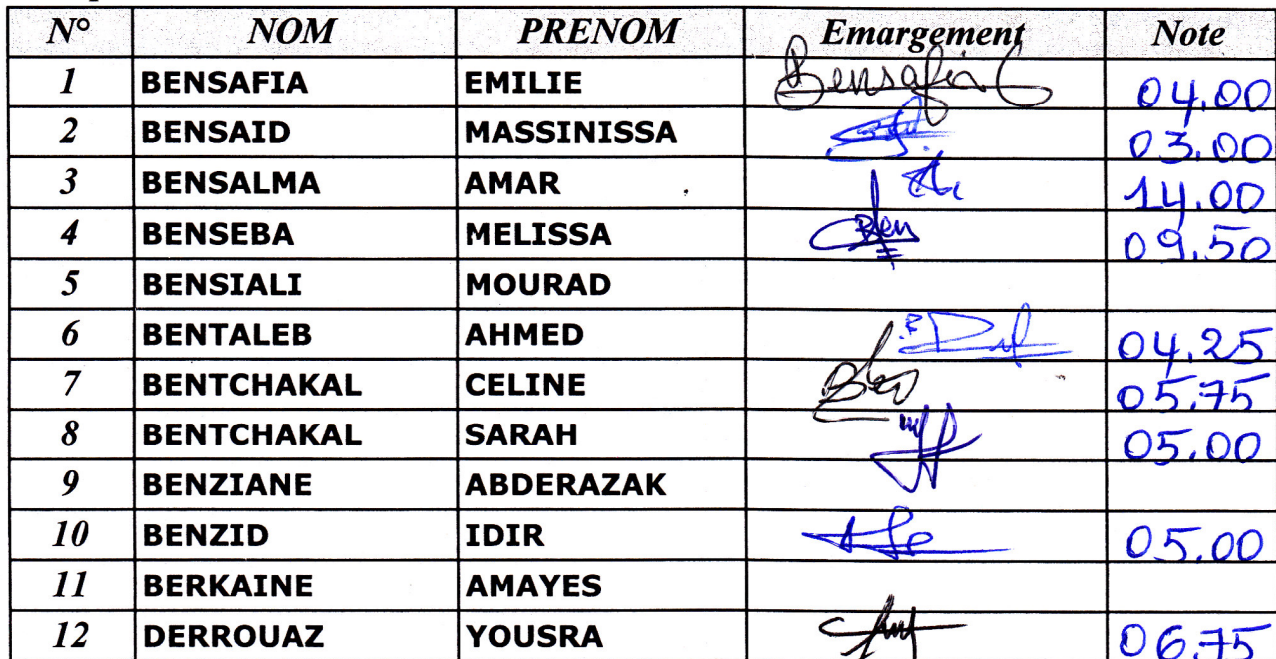 N° NOM PRENOM Emargement Note
1 BENSAFIA EMILIE Bensafia 04.00
2 BENSAID MASSINISSA 03.00
3 BENSALMA AMAR 14.00
4 BENSEBA MELISSA Ben 09.50
5 BENSIALI MOURAD
6 BENTALEB AHMED 04.25
7 BENTCHAKAL CELINE 05.75
8 BENTCHAKAL SARAH 05.00
9 BENZIANE ABDERAZAK
10 BENZID IDIR 05.00
11 BERKAINE AMAYES
12 DERROUAZ YOUSRA 06.75